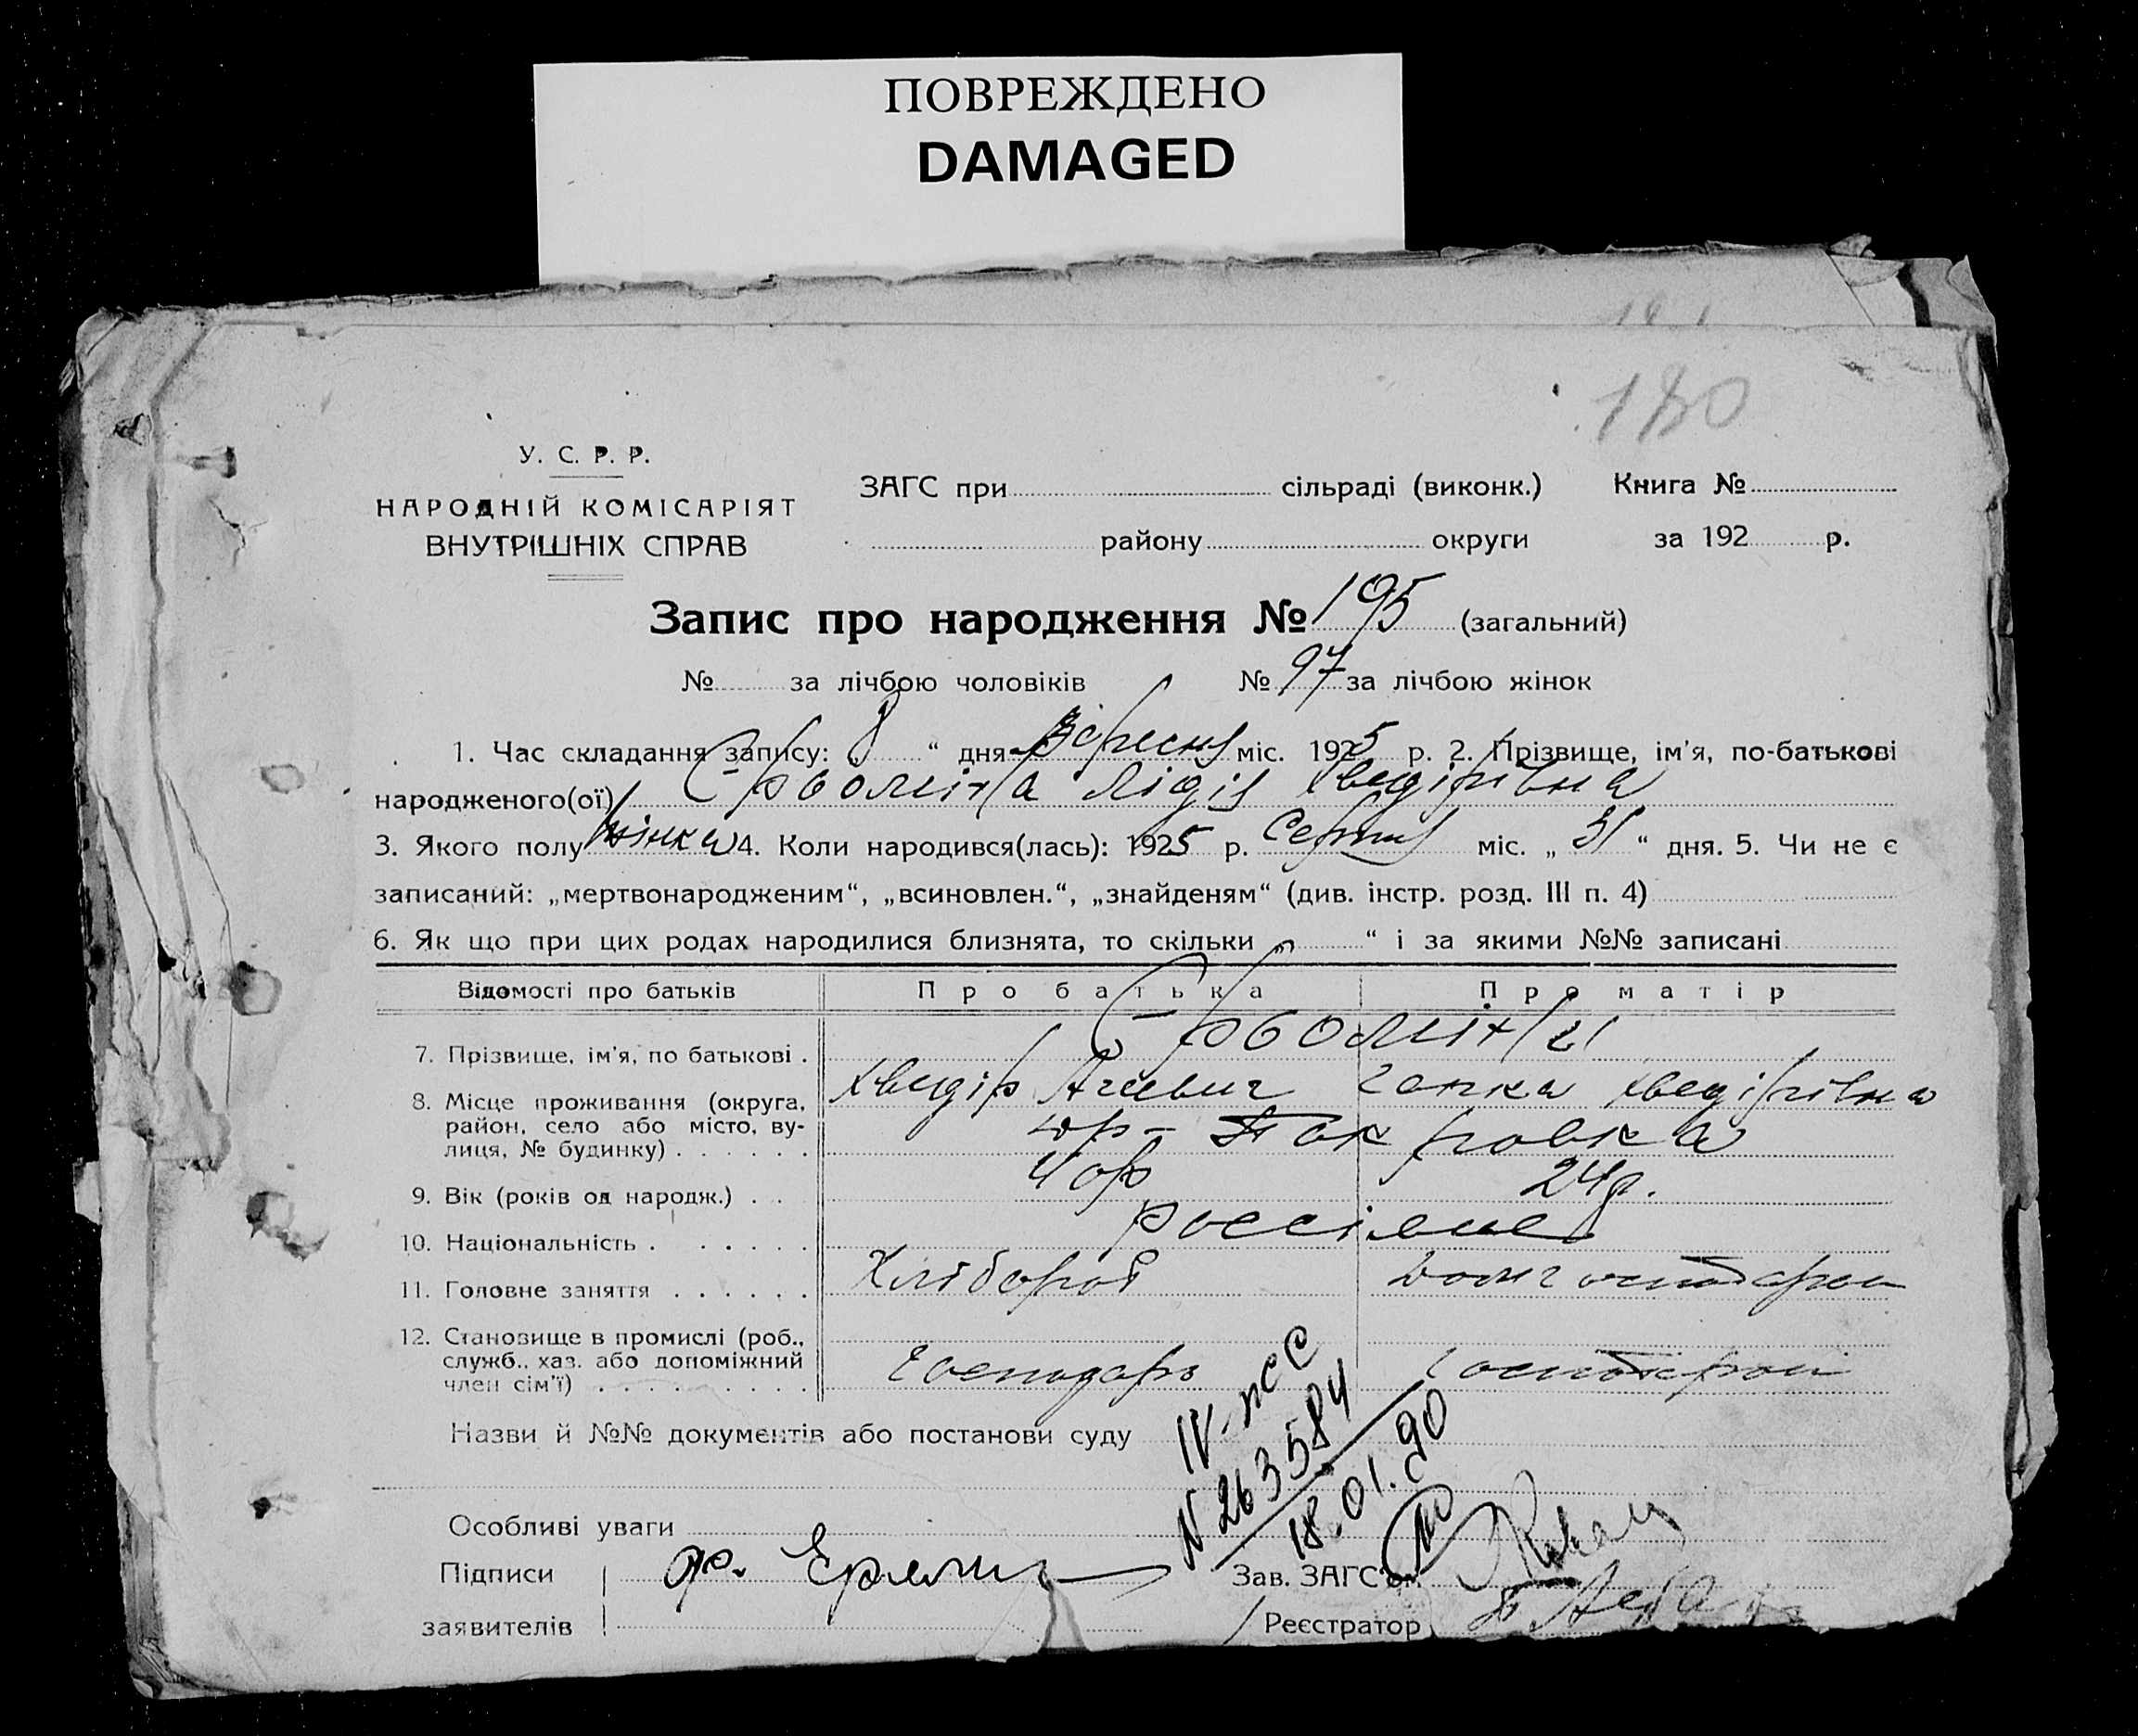 ПОВРЕЖДЕНО
DAMAGED
180
У. С. Р. Р.
НАРОДНІЙ КОМІСАРІЯТ
ВНУТРІШНІХ СПРАВ
ЗАГС при сільраді (виконк.) Книга №
району округи за 192 р.
Запис про народження № 195 (загальний)
№ за лічбою чоловіків № 97 за лічбою жінок
1. Час складання запису: 8 “ дня Вересня міс. 1925 р. 2. Прізвище, ім'я, по-батькові
народженого(ої) Лідія Хведірівна
3. Якого полу жінка 4. Коли народився(лась): 1925 р. Серпня міс. „ 31 “ дня. 5. Чи не є
записаний: „мертвонародженим“, „всиновлен.“, „знайденям“ (див. інстр. розд. III п. 4)
6. Як що при цих родах народилися близнята, то скільки „ “ і за якими №№ записані
Відомості про батьків Про батька Про матір
7. Прізвище, ім'я, по батькові .
Хведір Ганка Хведірівна
8. Місце проживання (округа,
район, село або місто, ву-
лиця, № будинку) . . . . . .
Покровка
9. Вік (років од народж.) . . 40р 24р.
10. Національність . . . . . . россіяне
11. Головне заняття . . . . . . Хлібороб
12. Становище в промислі (роб.,
служб., хаз. або допоміжний
член сім'ї) . . . . . . . . . Господарь
Назви й №№ документів або постанови суду
IV-ПСС
N 263584
18.01.90
Особливі уваги
Підписи
заявителів
Зав. ЗАГС'ом
Реєстратор